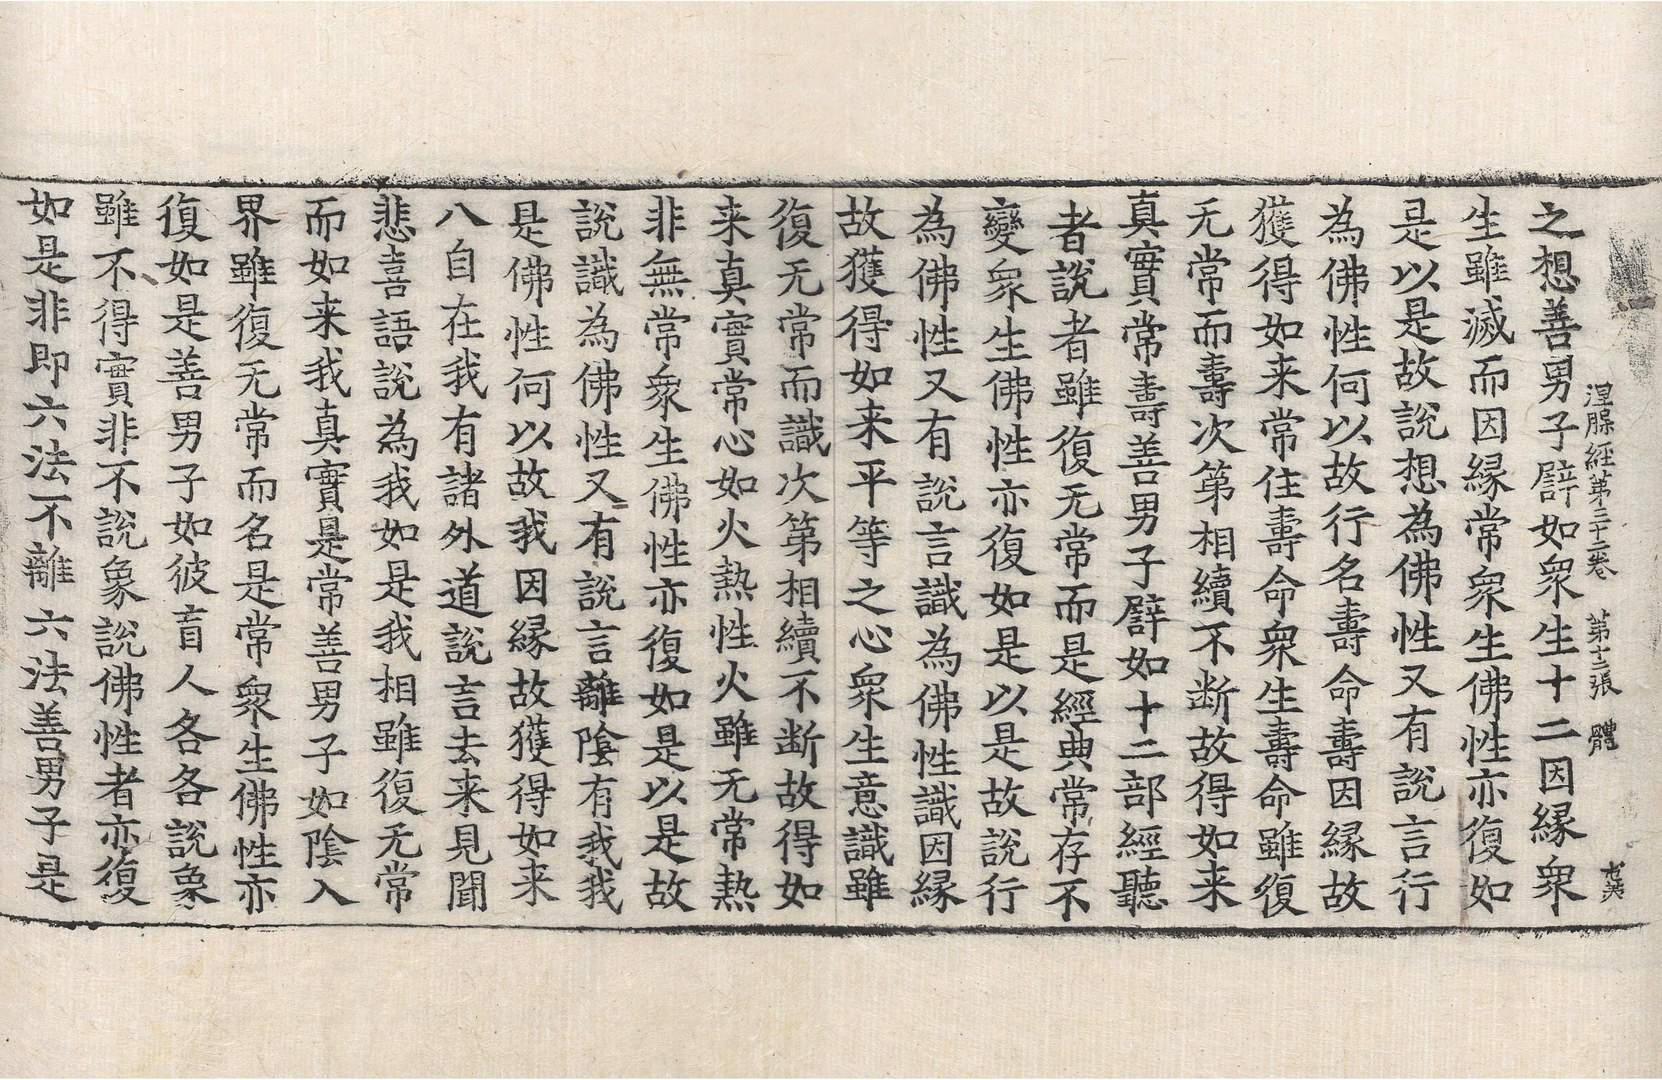 涅槃經第三十二卷 第十三張 體
之想善男子譬如衆生十二因縁衆
生雖滅而因縁常衆生佛性亦復如
是以是故說想為佛性又有說言行
為佛性何以故行名壽命壽因縁故
獲得如来常住壽命衆生壽命雖復
无常而壽次第相續不断故得如来
真實常壽善男子譬如十二部經聽
者說者雖復无常而是經典常存不
變衆生佛性亦復如是以是故說行
為佛性又有說言識為佛性識因縁
故獲得如来平等之心衆生意識雖
復无常而識次第相續不断故得如
来真實常心如火熱性火雖无常熱
非無常衆生佛性亦復如是以是故
說識為佛性又有說言離陰有我我
是佛性何以故我因縁故獲得如来
八自在我有諸外道說言去来見聞
悲喜語說為我如是我相雖復无常
而如来我真實是常善男子如陰入
界雖復无常而名是常衆生佛性亦
復如是善男子如彼盲人各各說象
雖不得實非不說象說佛性者亦復
如是非即六法不離六法善男子是